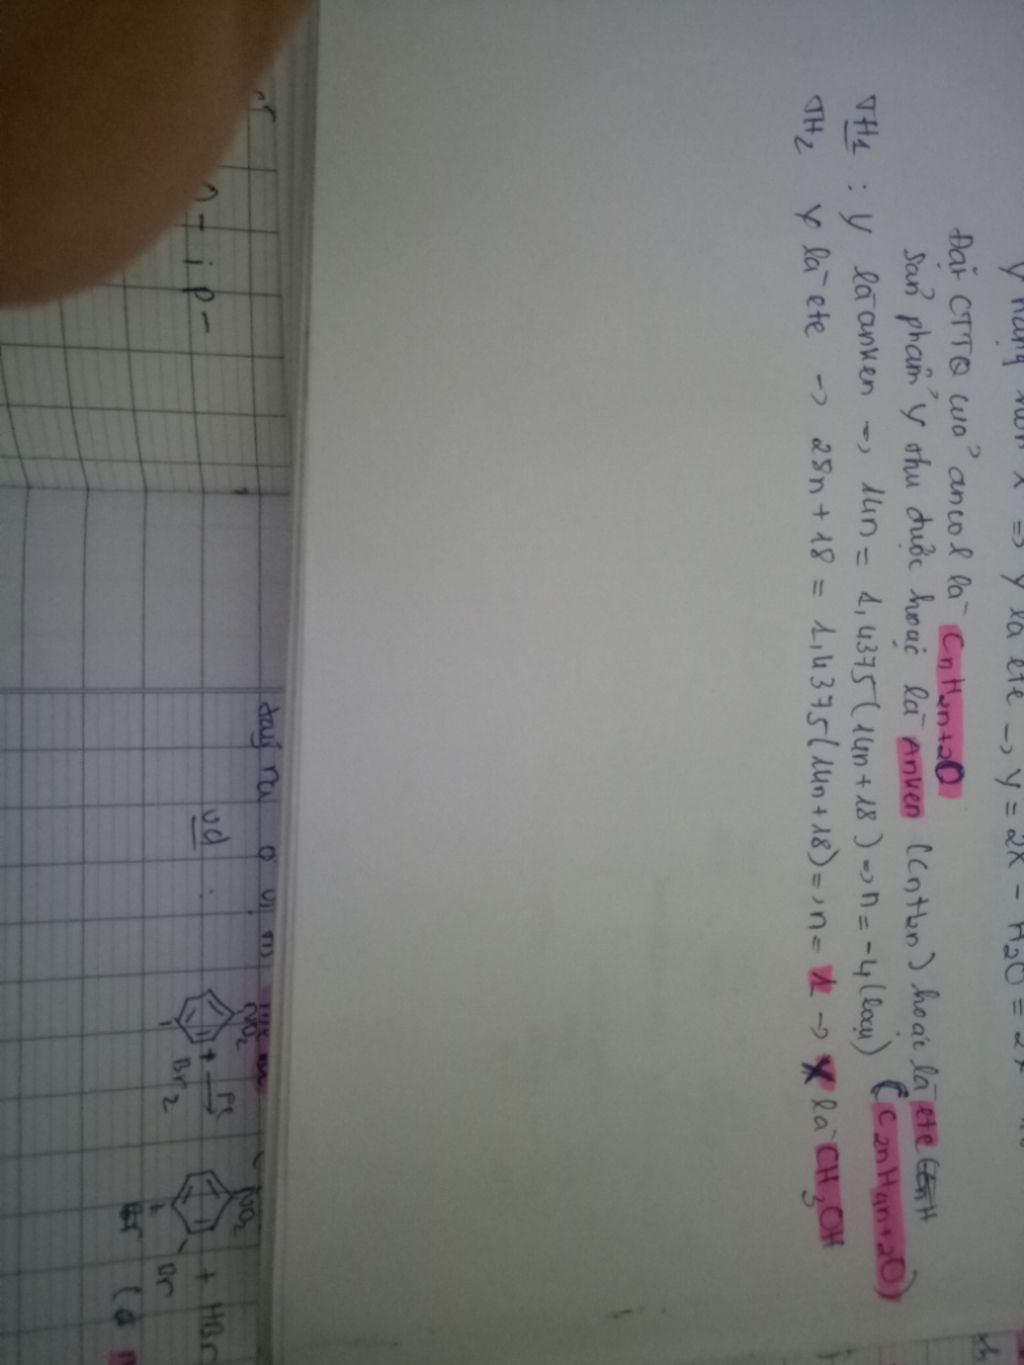 Y nặng hơn X => Y là ete -> Y = 2X - H2O = 2X
Đặt CTTQ của ancol là CnH2n+2O
Sản phẩm Y thu được hoặc là Anken (CnH2n) hoặc là ete
(C2nH4n+2O)
TH1 : Y là anken -> 14n = 1,4375(14n+18) -> n = -4 (loại)
TH2 Y là ete -> 28n + 18 = 1,4375(14n+18) => n = 1 -> X là CH3OH
o vị trí
n - i p -
vd :
NO2 NO2
+ Br2 Fe + HBr
Br